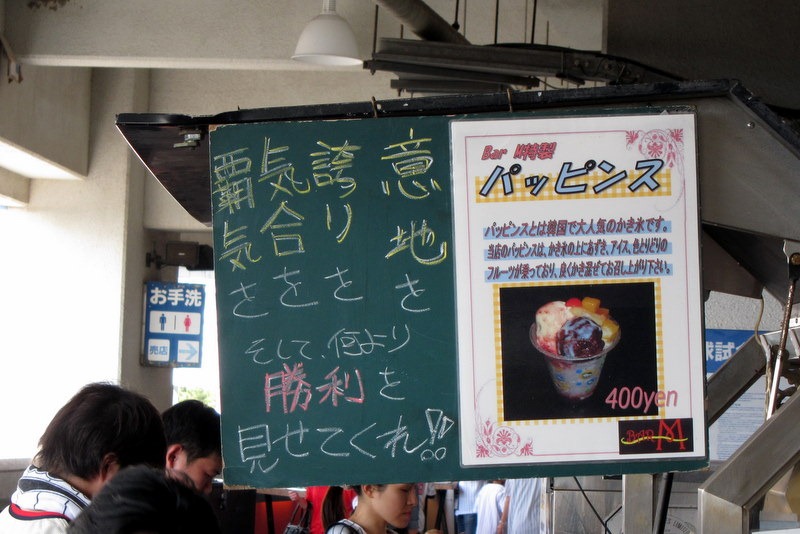 意地を
誇りを
気合を
覇気を
そして、何より
勝利を
見せてくれ!!
Bar M特製
パッピンス
パッピンスとは韓国で大人気のかき氷です。
当店のパッピンスは、かき氷の上にあずき、アイス、色とりどりの
フルーツが乗っており、良くかき混ぜてお召し上がり下さい。
400yen
BAR M
お手洗
売店
球試